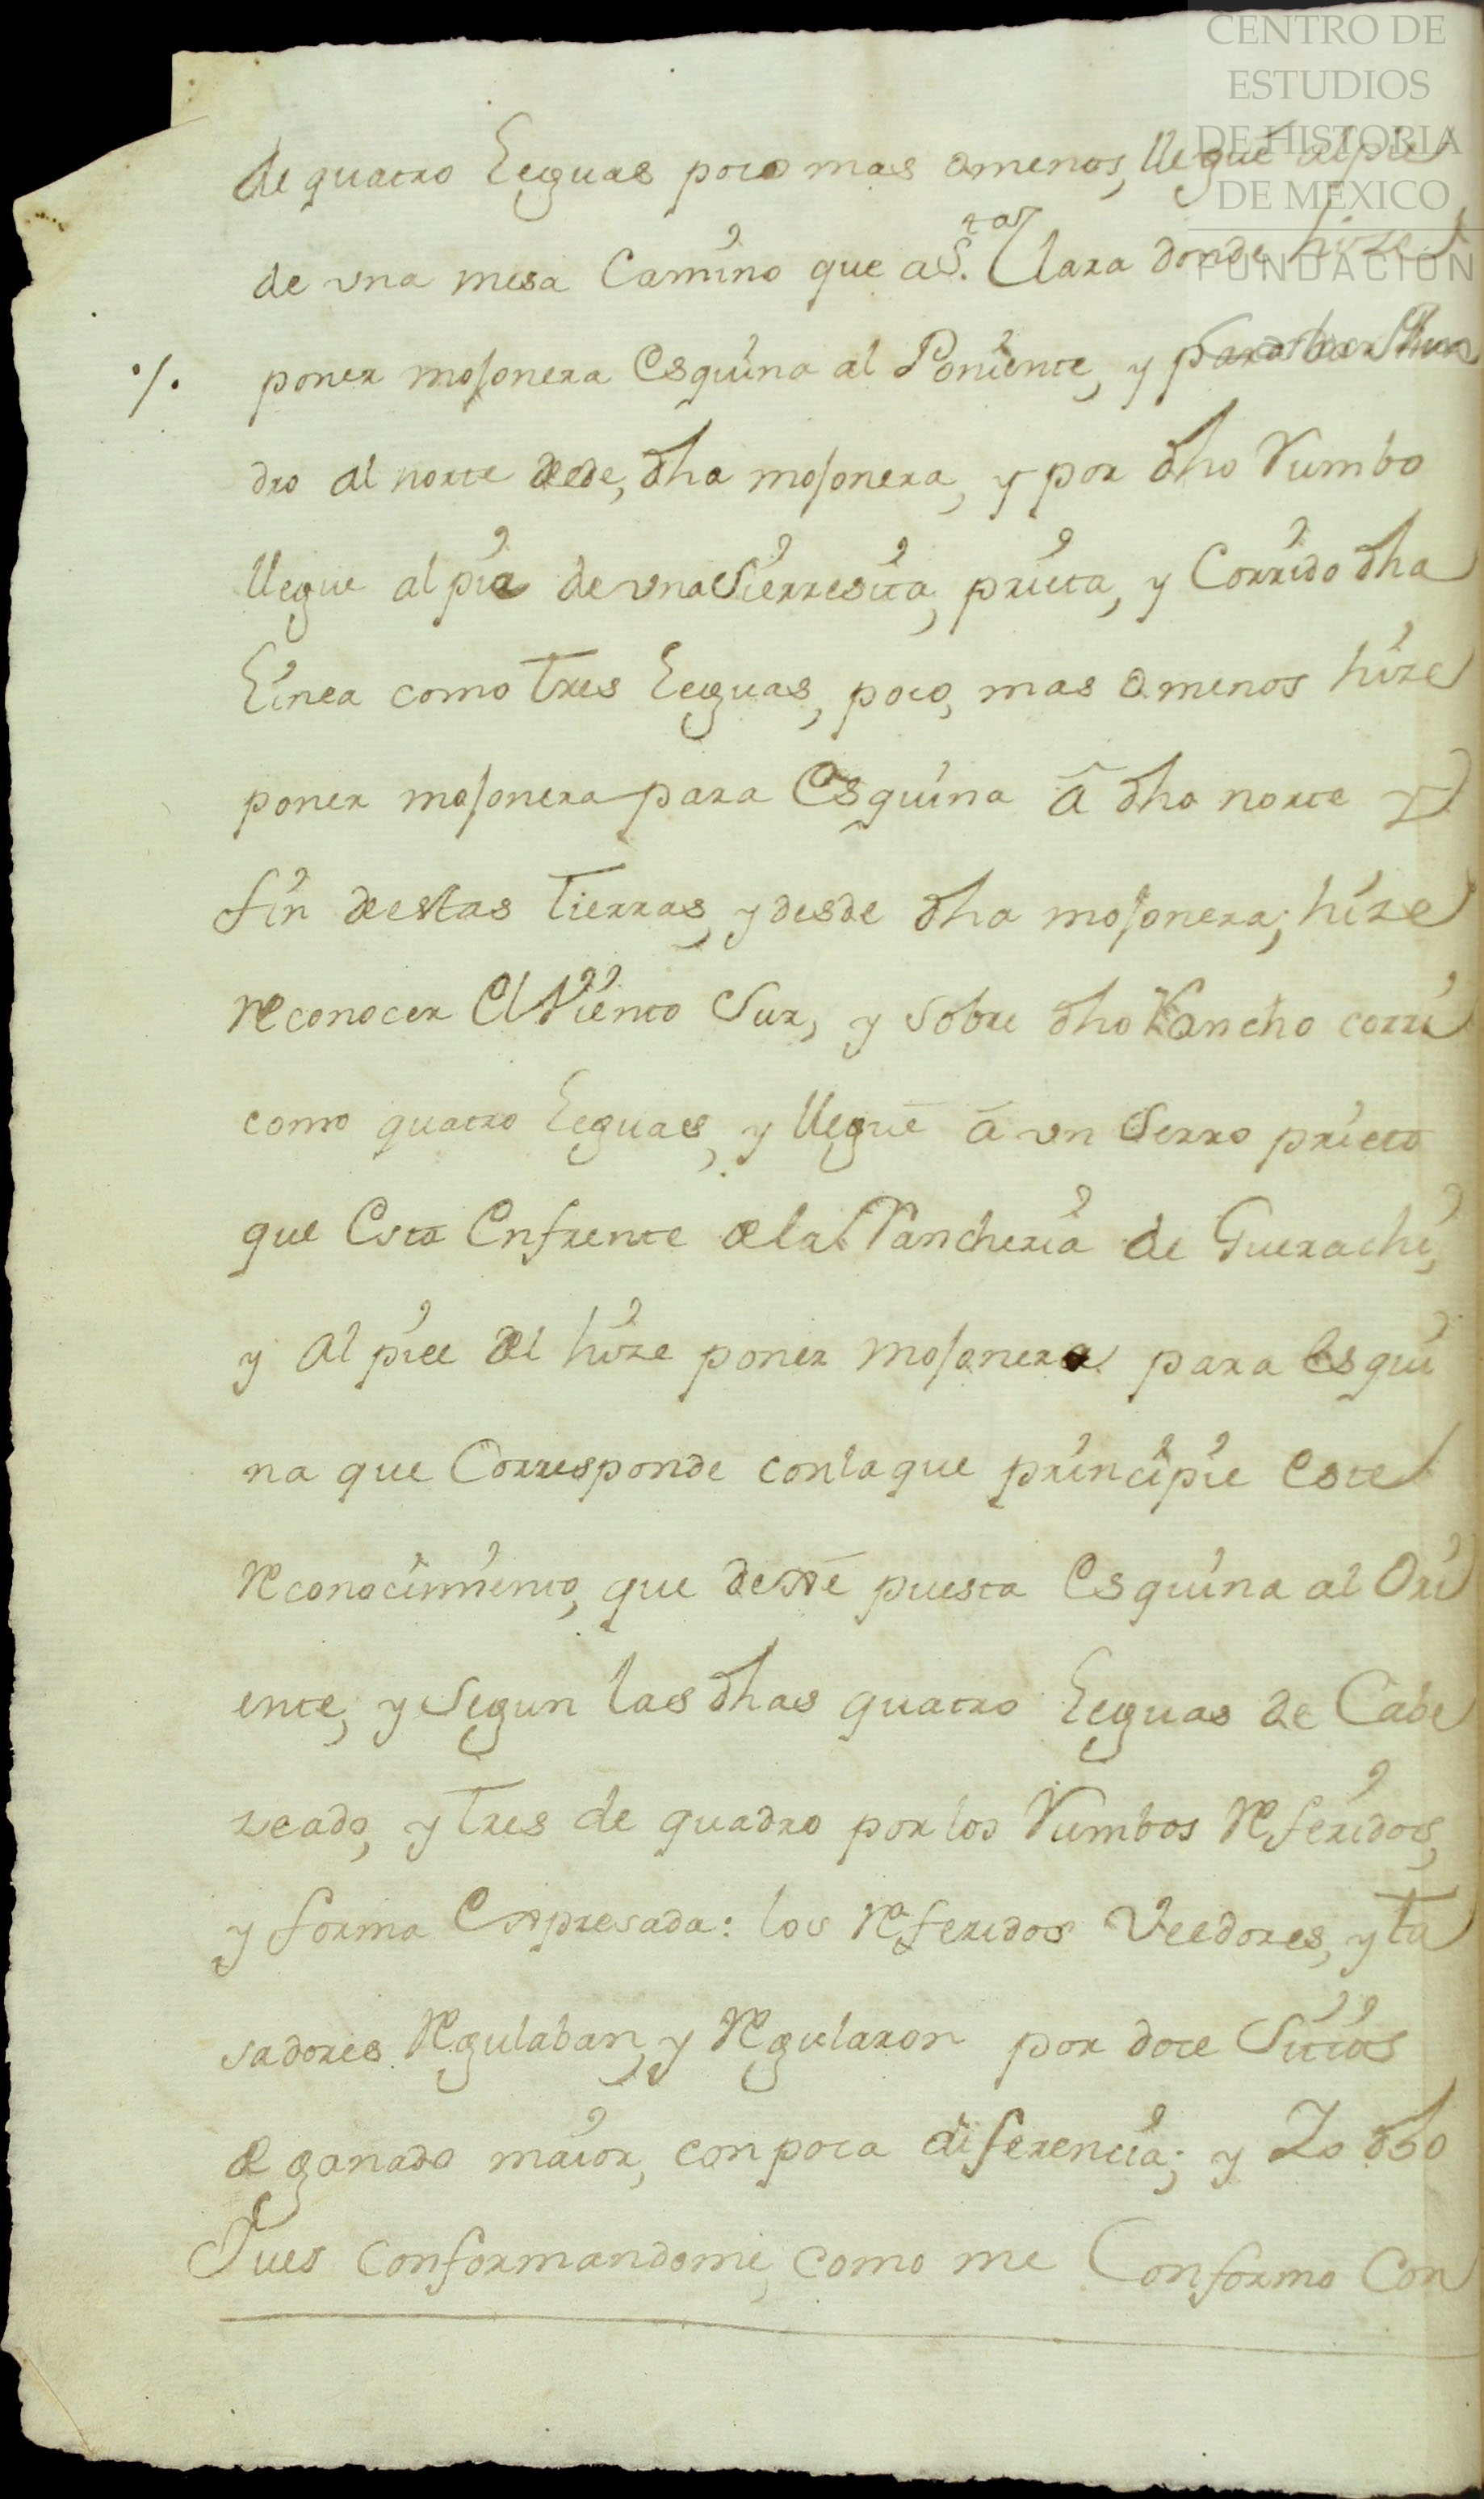 CENTRO DE
ESTUDIOS
DE HISTORIA
DE MEXICO
FUNDACION
de quatro Leguas poco mas amenos, llegué alpie
de vna mesa Camino que a S.ta Clara donde hize
./. poner mojonera Esquina al Poniente, y para
dro al norte dede, dha mojonera, y por dho Rumbo
llegue al pie de vna Sierresita, prieta, y Corrido dha
Linea como tres Leguas, poco, mas amenos hize
poner mojonera para Esquina â dho norte y
fin destas tierras, y desde dha mojonera; hize
Reconocer El Viento Sur, y sobre dho Rancho corri
como quatro Leguas, y llegué â vn Serro prieto
que Esta Enfrente dela Rancheria de Guerachi,
y al piee del hize poner mojonera para Esqui
na que Corresponde conlaque principie este
Reconocimiento, que dexé puesta Esquina al Ori
ente, y segun las dhas quatro Leguas de Cabe
zeado, y tres de quadro por los Rumbos Referidos,
y forma Expresada: los Referidos Veedores, y ta
sadores Regulaban, y Regularon por doce Sitios
de ganado maior, conpoca diferencia; y Io dho
Jues Conformandome, como me Conformo Con